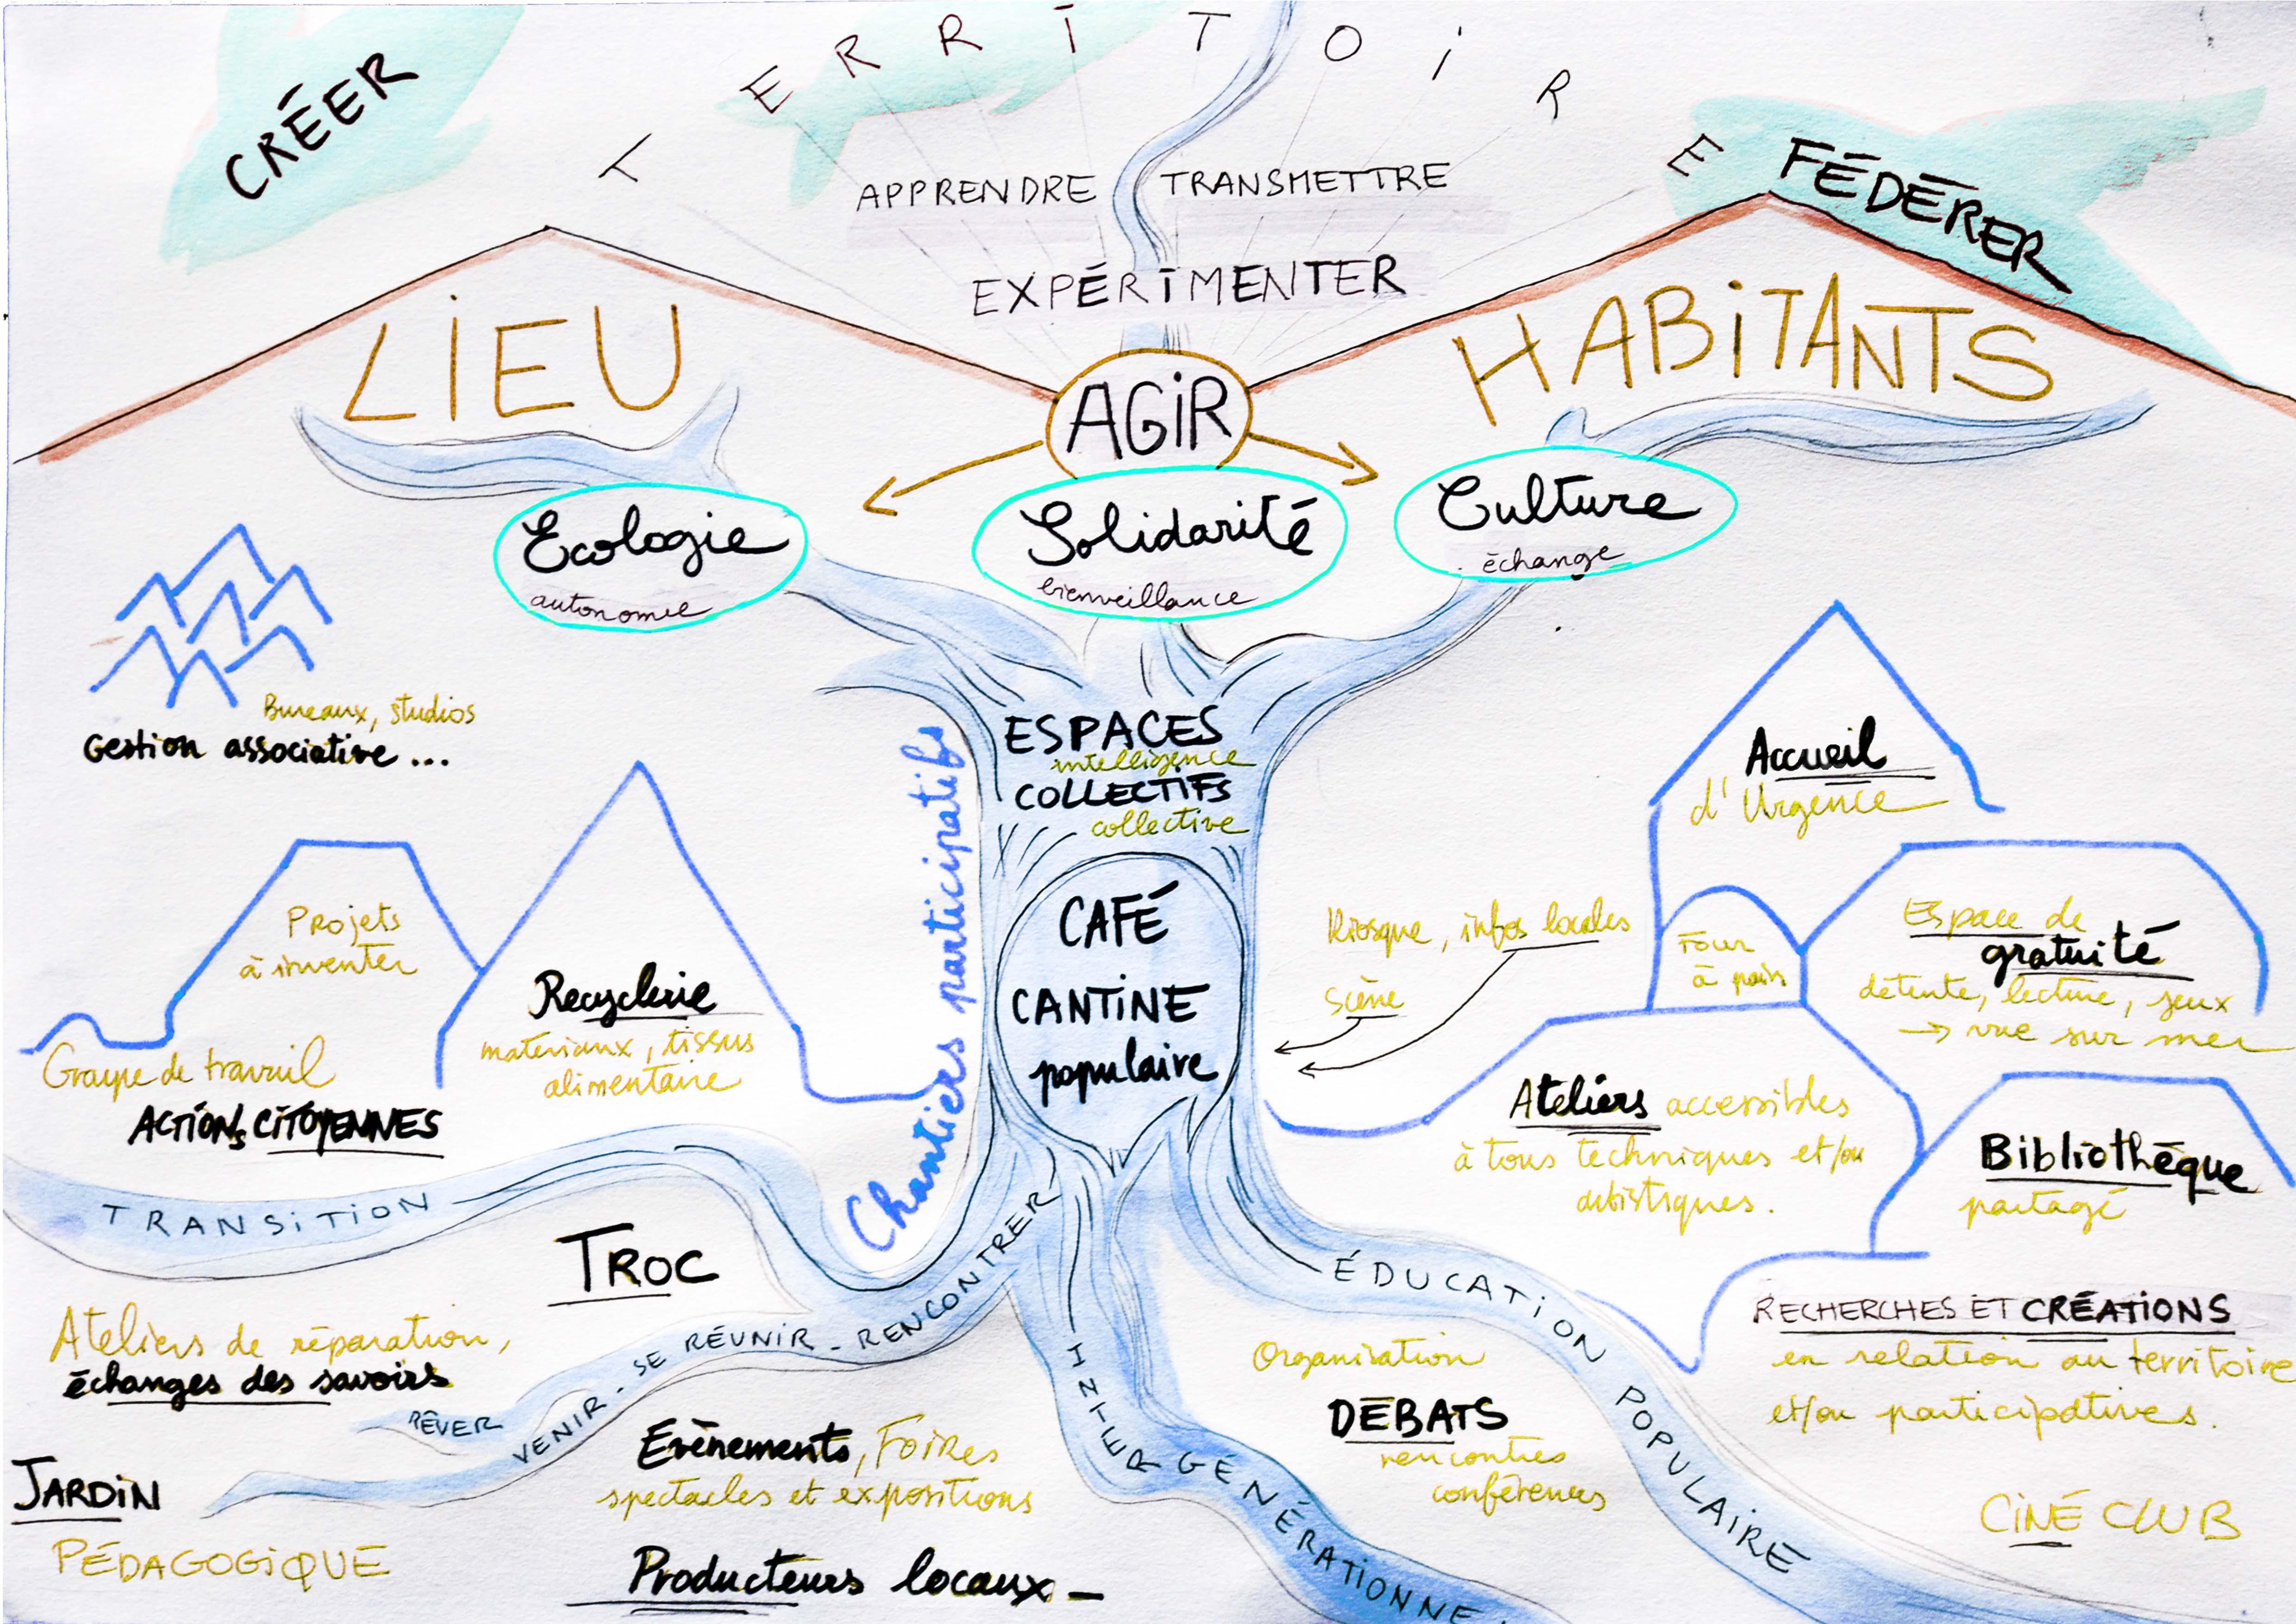 CRÉER
TERRITOIRE
FÉDÉRER
APPRENDRE TRANSMETTRE
EXPÉRIMENTER
LIEU
HABITANTS
AGIR
Ecologie
autonomie
Solidarité
bienveillance
Culture
échange
Bureaux, studios
Gestion associative ...
ESPACES
intelligence
COLLECTIFS
collective
Chantiers participatifs
CAFÉ
CANTINE
populaire
Projets
à inventer
Groupe de travail
ACTIONS CITOYENNES
Recyclerie
matériaux, tissus
alimentaire
Kiosque, infos locales
Scène
Accueil
d'Urgence
Four
à pain
Espace de
gratuité
détente, lecture, jeux
→ vue sur mer
Ateliers accessibles
à tous techniques et/ou
artistiques.
Bibliothèque
partagé
TRANSITION
TROC
Ateliers de réparation,
échanges des savoirs
RÊVER
VENIR - SE RÉUNIR - RENCONTRER
JARDIN
PÉDAGOGIQUE
Evènements, Foires
spectacles et expositions
Producteurs locaux -
INTER GÉNÉRATIONNE
ÉDUCATION POPULAIRE
Organisation
DÉBATS
rencontres
conférences
RECHERCHES ET CRÉATIONS
en relation au territoire
et/ou participatives.
CINÉ CLUB